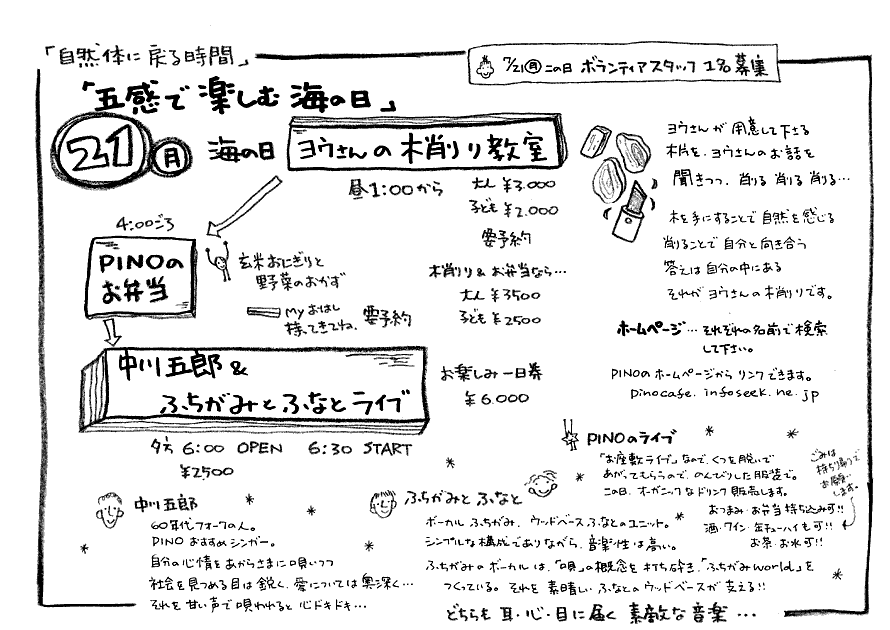 「自然体に戻る時間」
7/21(月)この日 ボランティアスタッフ 1名募集
「五感で楽しむ海の日」
21(月) 海の日 ヨウさんの木削り教室
昼1:00から
大人 ¥3.000
子ども ¥2.000
要予約
木削り&お弁当なら…
大人 ¥3500
子ども ¥2500
ヨウさんが用意して下さる
木片を、ヨウさんのお話を
聞きつつ、削る 削る 削る…
木を手にすることで自然を感じる
削ることで自分と向き合う
答えは自分の中にある
それがヨウさんの木削りです。
4:00ごろ
PINOの
お弁当
玄米おにぎりと
野菜のおかず
myおはし
持ってきてね、要予約
ホームページ…それぞれの名前で検索
して下さい。
PINOのホームページからリンクできます。
pinocafe.infoseek.ne.jp
中川五郎&
ふちがみとふなとライブ
夕方 6:00 OPEN 6:30 START
¥2500
お楽しみ一日券
¥6.000
PINOのライブ
「お座敷ライブ」なので、くつを脱いで
あがってもらうので、のんびりした服装で。
この日、オーガニックなドリンク販売します。
おつまみ・お弁当 持ち込み可!!
酒・ワイン・缶チューハイも可!!
お茶・お水可!!
ごみは
持ち帰りで
お願い
します。
中川五郎
60年代フォークの人。
PINOおすすめシンガー。
自分の心情をあからさまに唄いつつ
社会を見つめる目は鋭く、愛については奥深く…
それを甘い声で唄われると心ドキドキ…
ふちがみとふなと
ボーカルふちがみ、ウッドベースふなとのユニット。
シンプルな構成でありながら、音楽性は高い。
ふちがみのボーカルは、「唄」の概念を打ち砕き、「ふちがみworld」を
つくっている。それを素晴しいふなとのウッドベースが支える!!
どちらも 耳・心・目に届く 素敵な音楽…